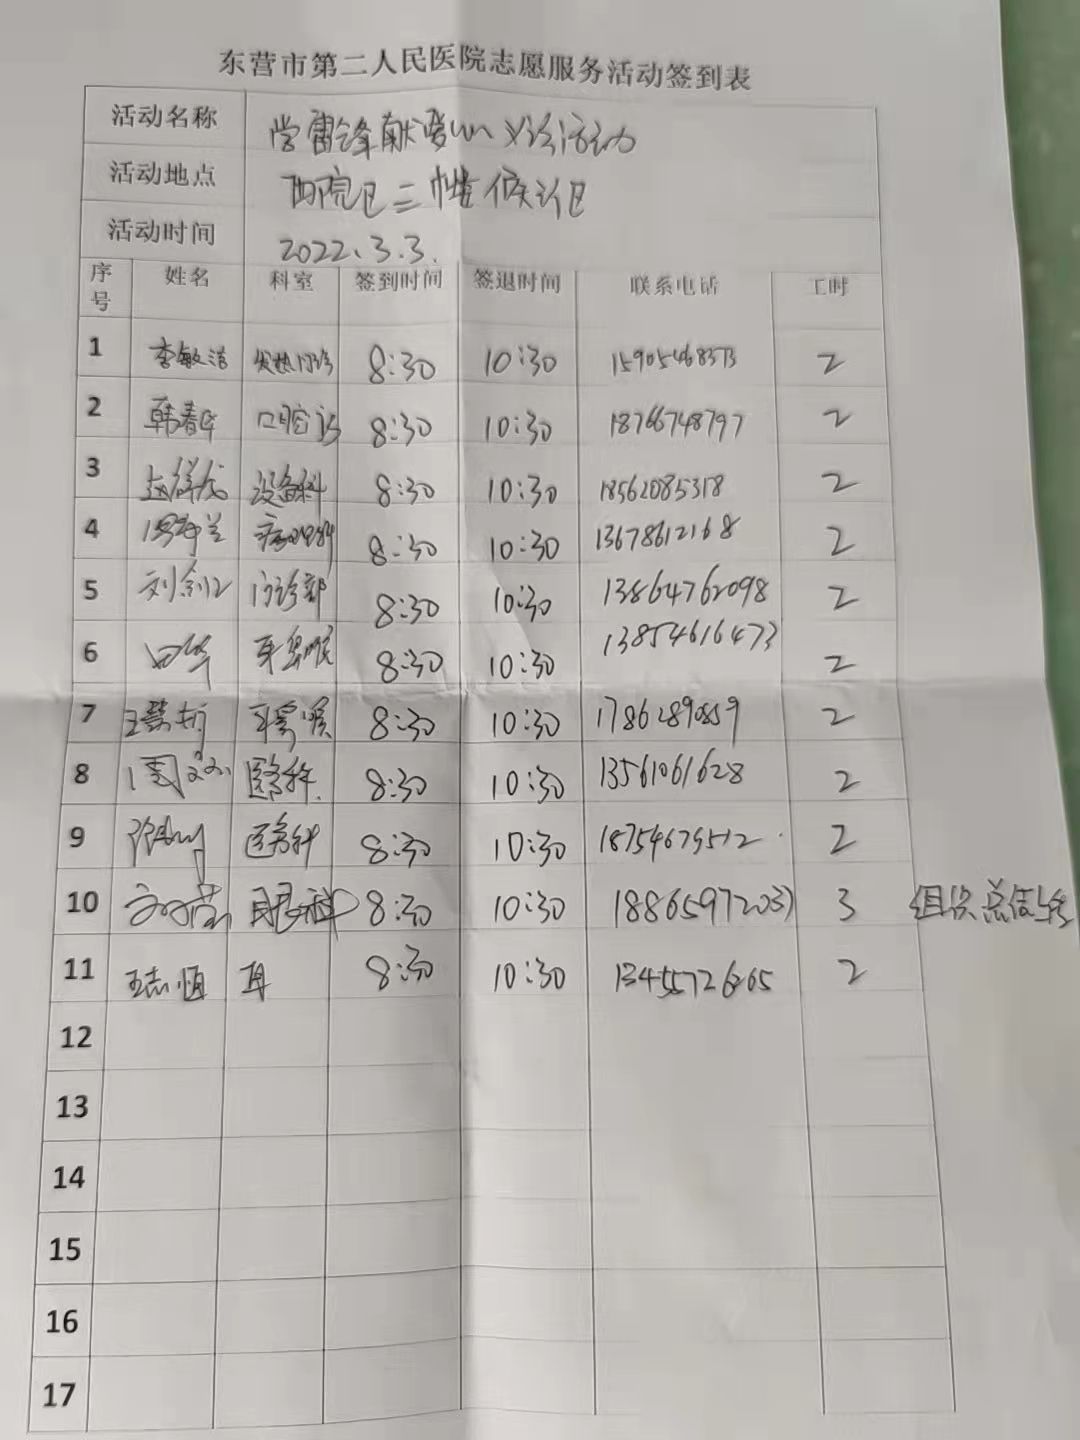 东营市第二人民医院志愿服务活动签到表
活动名称 学雷锋献爱心义诊活动
活动地点 西院区二楼候诊区
活动时间 2022.3.3.
序号 姓名 科室 签到时间 签退时间 联系电话 工时
1 李敏洁 发热门诊 8:30 10:30 15905468373 2
2 韩春华 口腔诊 8:30 10:30 18766748797 2
3 设备科 8:30 10:30 18562085318 2
4 病理科 8:30 10:30 13678612168 2
5 门诊部 8:30 10:30 13864762098 2
6 田华 耳鼻喉 8:30 10:30 13854616473 2
7 耳鼻喉 8:30 10:30 17862890859 2
8 医务科 8:30 10:30 13561061628 2
9 医务科 8:30 10:30 18754675512 2
10 眼科 8:30 10:30 18865972031 3 组织总结上传
11 王志恒 耳 8:30 10:30 13455726265 2
12
13
14
15
16
17